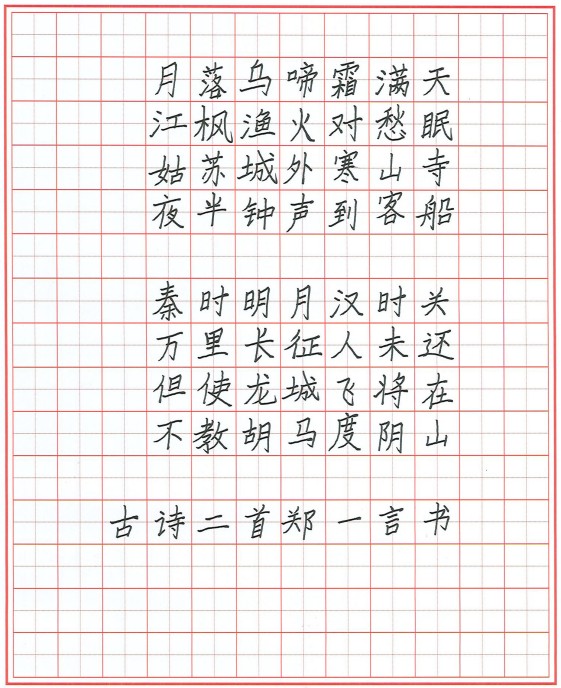 月落乌啼霜满天
江枫渔火对愁眠
姑苏城外寒山寺
夜半钟声到客船
秦时明月汉时关
万里长征人未还
但使龙城飞将在
不教胡马度阴山
古诗二首郑一言书